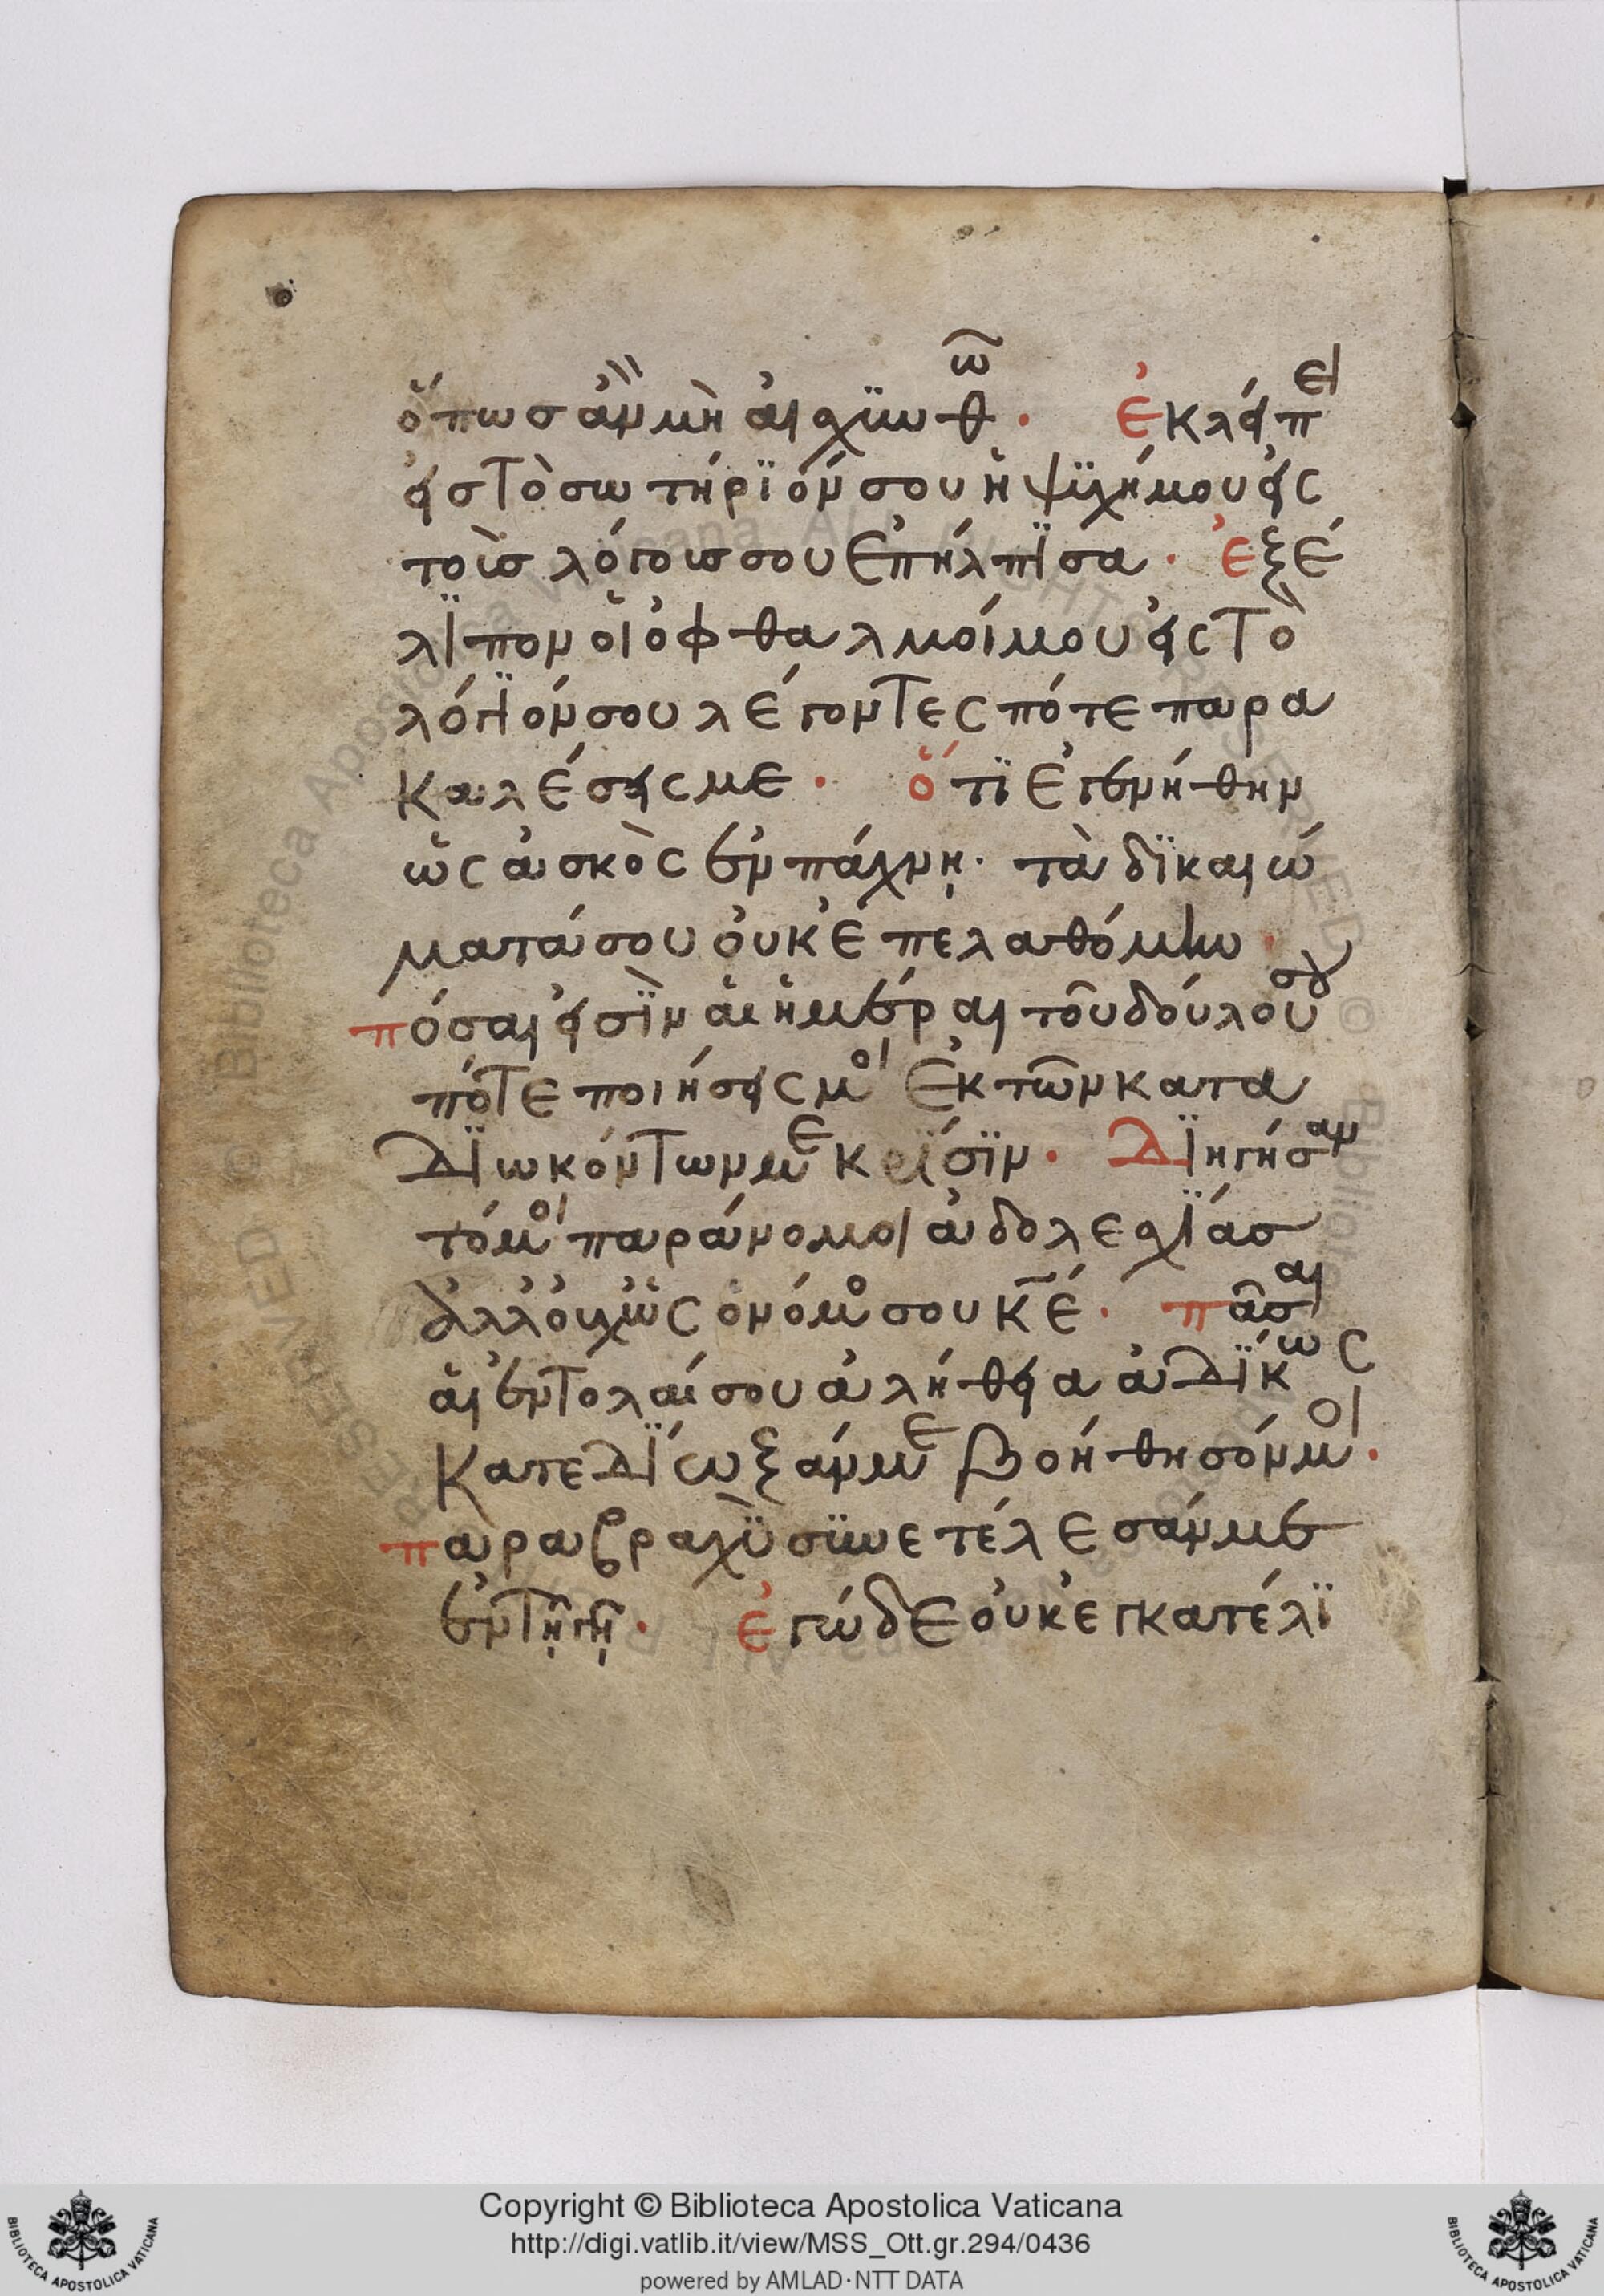 ὅπως ἂν μὴ αἰσχϋνθῶ. ἐκλείπει
εἰς τὸ σωτήρϊόν σου ἡ ψϋχή μου εἰς
τοὺς λόγους σου ἐπήλπϊσα. ἐξέ
λϊπον οἱ ὀφθαλμοί μου εἰς τὸ
λόγϊόν σου λέγοντες πότε παρα
καλέσεις με. ὅτϊ ἐγενήθην
ὡς ἀσκὸς ἐν πάχνῃ. τὰ δϊκαιώ
ματά σου οὐκ ἐπελαθόμην.
πόσαι εἰσῒν αἱ ἡμέραι τοῦ δούλου σου
πότε ποιήσεις μοι ἐκ τῶν κατα
δϊωκόντων με κρίσϊν. Δϊηγήσαν
τό μοι παράνομοι ἀδολεσχϊας
ἀλλ' οὐχ ὡς ὁ νόμος σου κ̅ε̅. πᾶσαι
αἱ ἐντολαί σου ἀλήθεια ἀδϊκως
κατεδϊωξάν με βοήθησόν μοι.
παρὰ βραχὺ σϋνετέλεσάν με
ἐν τῇ γῇ. ἐγὼ δὲ οὐκ ἐγκατέλϊ
Copyright © Biblioteca Apostolica Vaticana
http://digi.vatlib.it/view/MSS_Ott.gr.294/0436
powered by AMLAD·NTT DATA
BIBLIOTECA APOSTOLICA VATICANA
BIBLIOTECA APOSTOLICA VATICANA